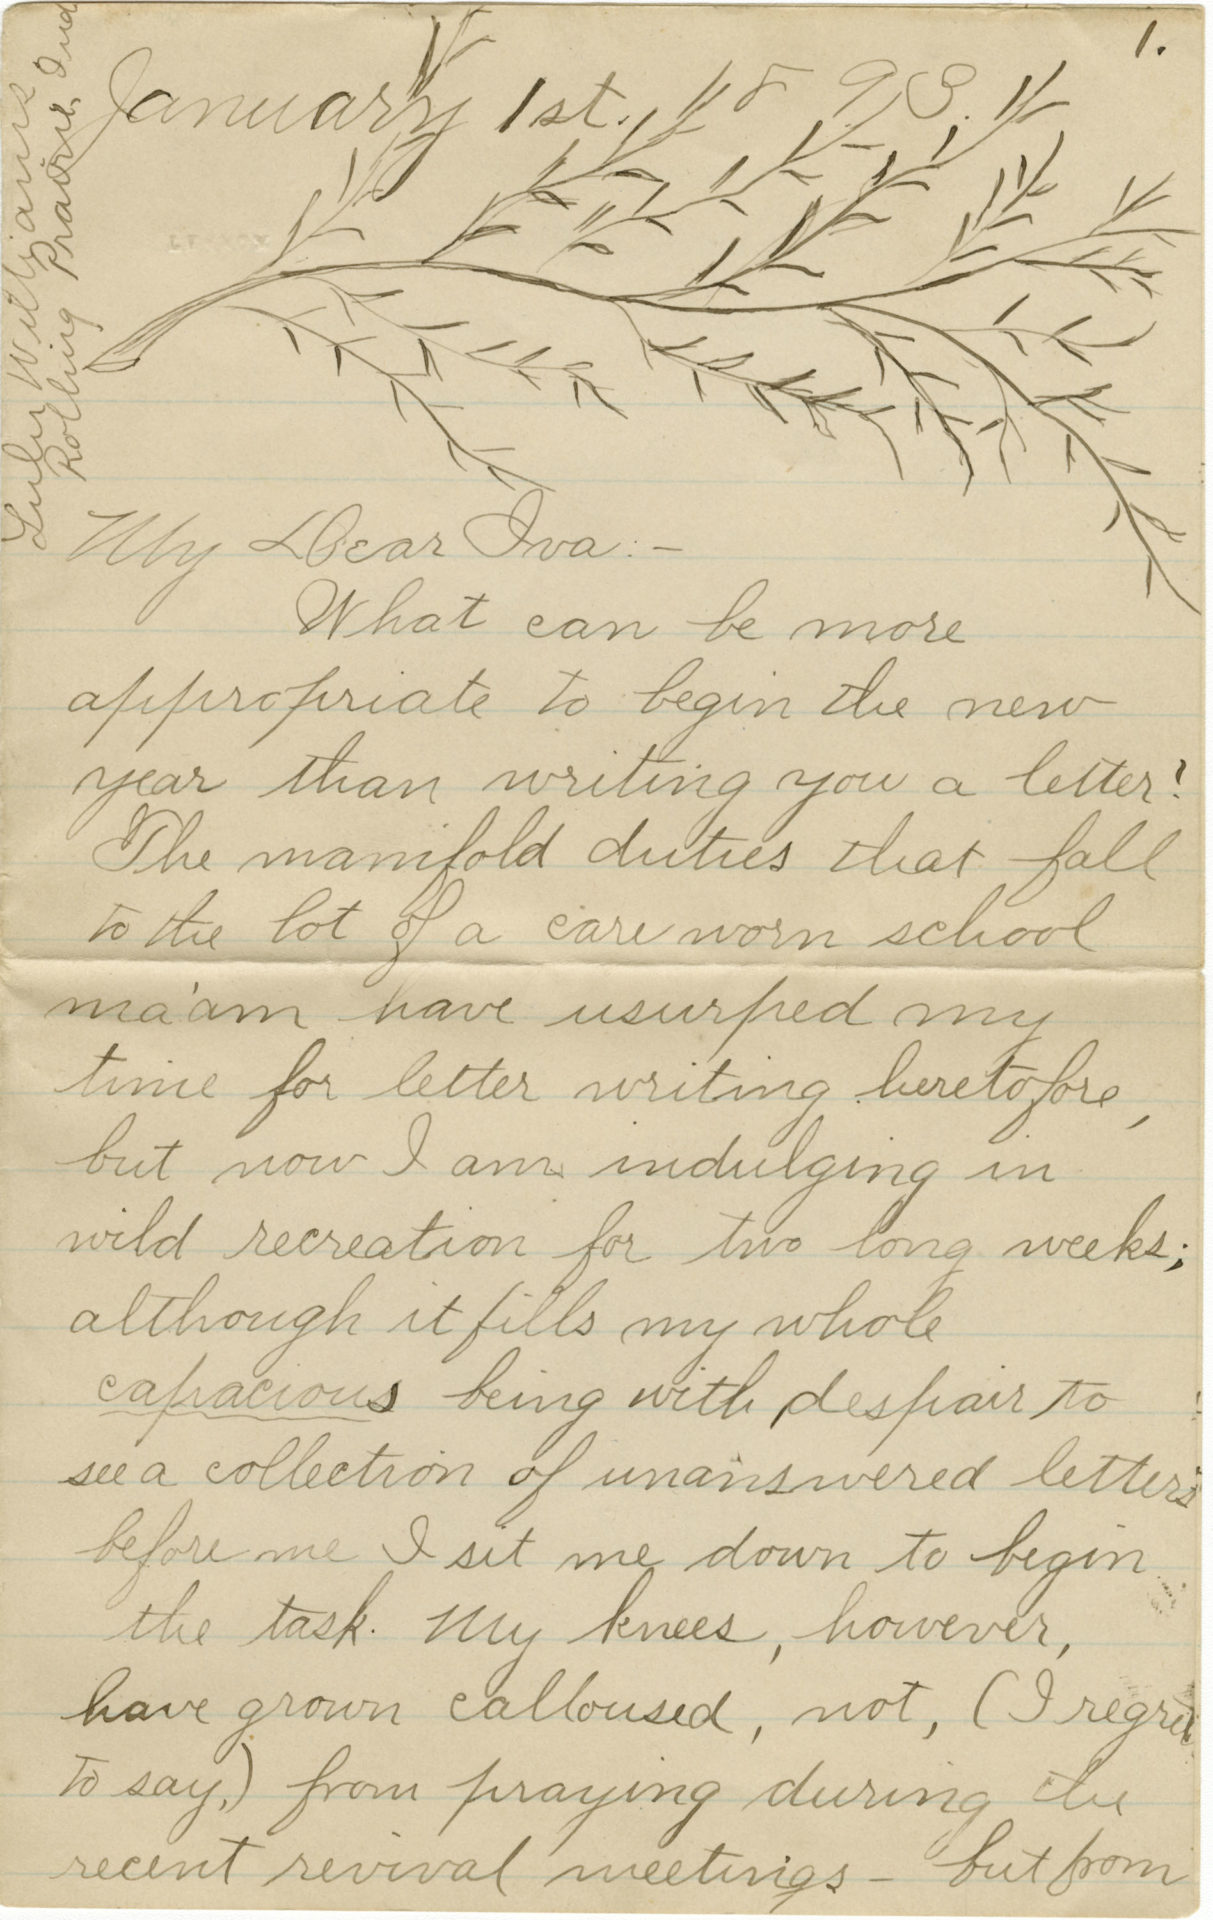 1.
January 1st. 1893.
Rolling Prairie, Ind
My Dear Iva:-
What can be more
appropriate to begin the new
year than writing you a letter?
The manifold duties that fall
to the lot of a care worn school
ma'am have usurped my
time for letter writing heretofore,
but now I am indulging in
wild recreation for two long weeks;
although it fills my whole
capacious being with despair to
see a collection of unanswered letters
before me I sit me down to begin
the task. My knees, however,
have grown calloused, not, (I regret
to say,) from praying during the
recent revival meetings - but from